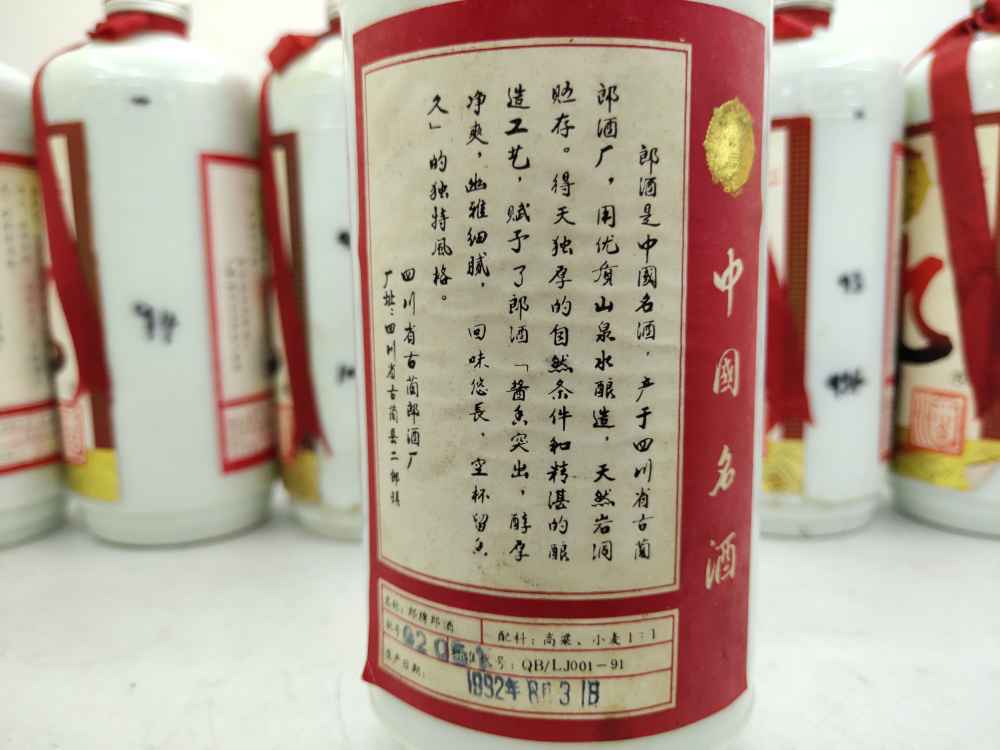 中國名酒
郎酒是中國名酒，产于四川省古蔺
郎酒厂，用优质山泉水酿造，天然岩洞
贮存。得天独厚的自然条件和精湛的酿
造工艺，赋予了郎酒「酱香突出，醇厚
净爽，幽雅细腻，回味悠長，空杯留香
久」的独特风格。
四川省古蔺郎酒厂
厂址：四川省古蔺县二郎镇
名称：郎牌郎酒
配料：高粱、小麦1:1
批号
号：QB/LJ001-91
生产日期：
1992年8月31日